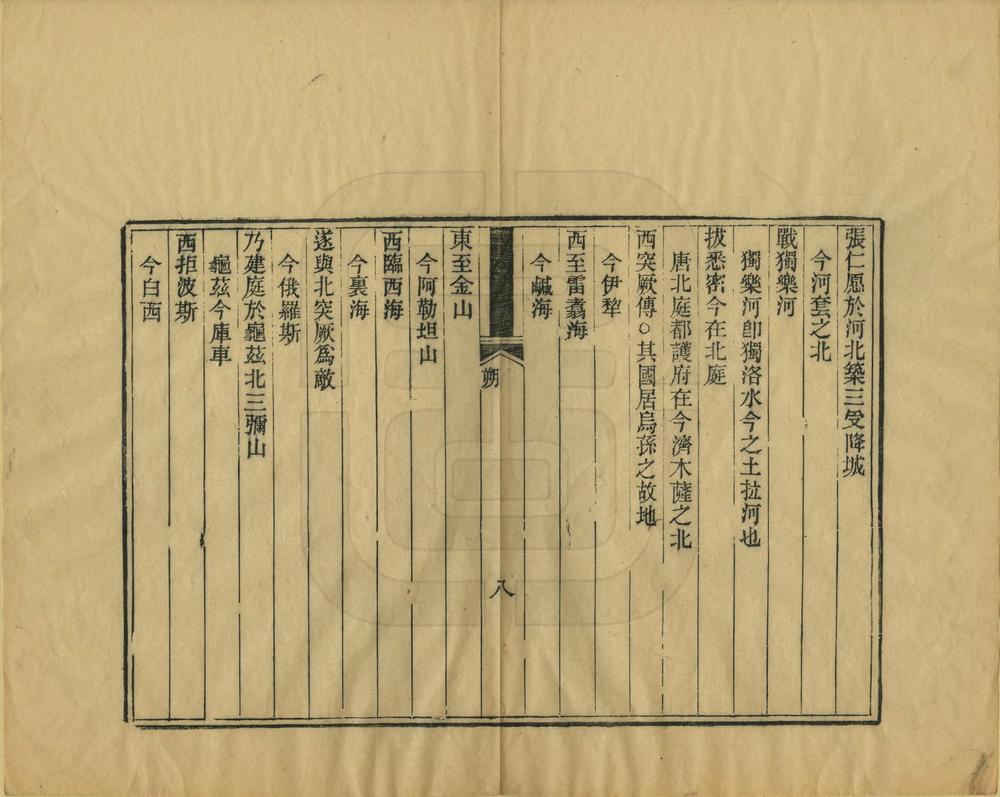 張仁愿於河北築三受降城
今河套之北
戰獨樂河
獨樂河卽獨洛水今之土拉河也
拔悉密今在北庭
唐北庭都護府在今濟木薩之北
西突厥傳○其國居烏孫之故地
今伊犂
西至雷翥海
今鹹海
朔
八
東至金山
今阿勒坦山
西臨西海
今裏海
遂與北突厥爲敵
今俄羅斯
乃建庭於龜茲北三彌山
龜茲今庫車
西拒波斯
今白西